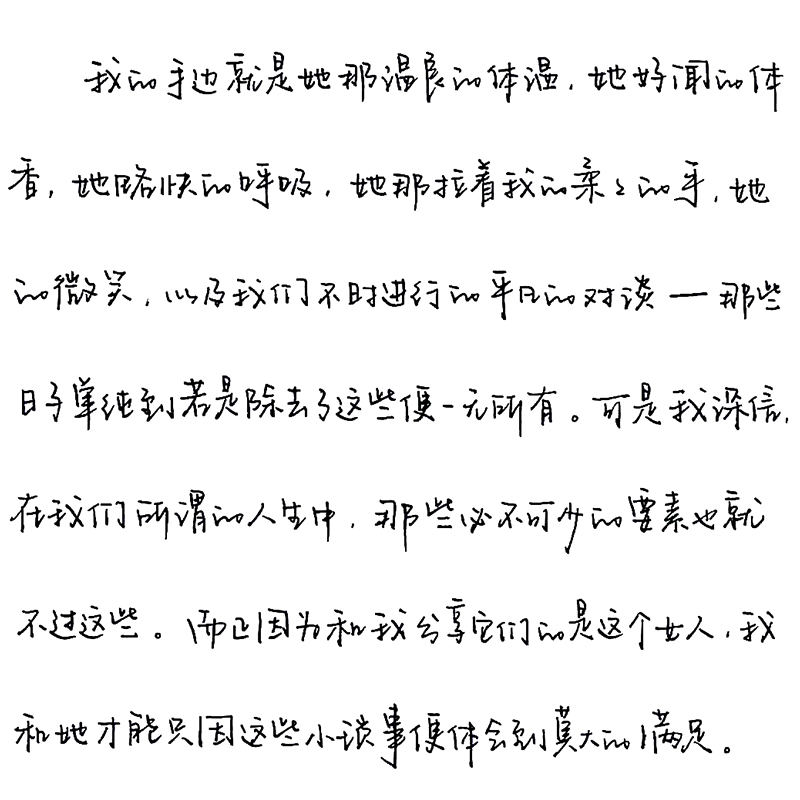 我的手边就是她那温良的体温，她好闻的体
香，她略快的呼吸，她那拉着我的柔々的手，她
的微笑，以及我们不时进行的平凡的对谈——那些
日子单纯到若是除去了这些便一无所有。可是我深信，
在我们所谓的人生中，那些必不可少的要素也就
不过这些。而正因为和我分享它们的是这个女人，我
和她才能只因这些小琐事便体会到莫大的满足。